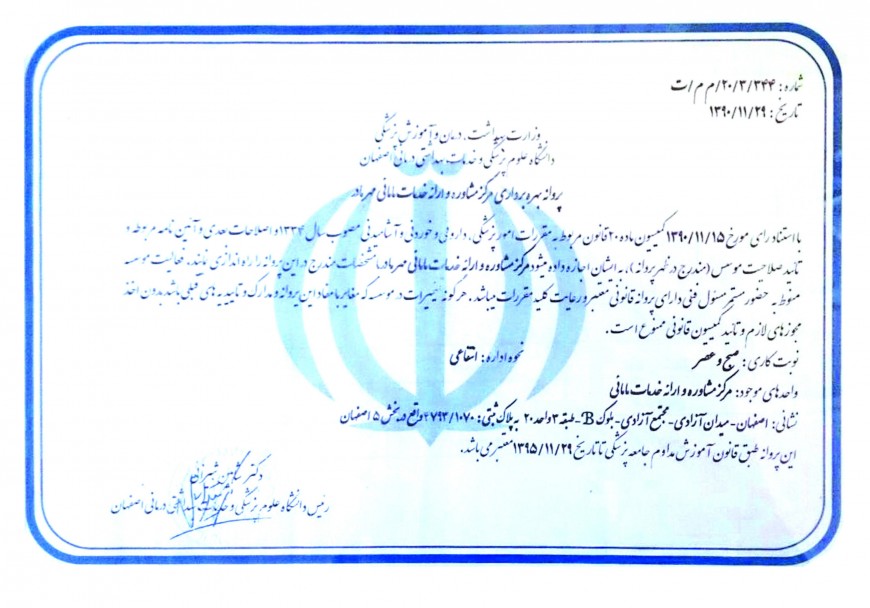 شماره: ۲۰/۳/۳۴۴/م م/ت
تاریخ: ۱۳۹۰/۱۱/۲۹
وزارت بهداشت، درمان و آموزش پزشکی
دانشگاه علوم پزشکی و خدمات بهداشتی درمانی اصفهان
پروانه بهره برداری مرکز مشاوره و ارائه خدمات مامائی مهر مادر
با استناد رای مورخ ۱۳۹۰/۱۱/۱۵ کمیسیون ماده ۲۰ قانون مربوط به مقررات امور پزشکی، داروئی و خوردنی و آشامیدنی مصوب سال ۱۳۳۴ و اصلاحات بعدی و آئین نامه مربوطه و
تائید صلاحیت موسس (مندرج در ظهر پروانه)، به ایشان اجازه داده میشود مرکز مشاوره و ارائه خدمات مامائی مهر مادر با مشخصات مندرج در این پروانه را راه اندازی نمایند. فعالیت موسسه
منوط به حضور مستمر مسئول فنی دارای پروانه قانونی معتبر و رعایت کلیه مقررات میباشد. هر گونه تغییرات در موسسه که مغایر با مفاد این پروانه و مدارک و تاییدیه های قبلی باشد بدون اخذ
مجوزهای لازم و تائید کمیسیون قانونی ممنوع است.
نوبت کاری: صبح و عصر نحوه اداره: انتفاعی
واحدهای موجود: مرکز مشاوره و ارائه خدمات مامائی
نشانی: اصفهان-میدان آزادی-مجتمع آزادی-بلوک B-طبقه ۳ واحد ۲۰ به پلاک ثبتی: ۴۷۹۳/۱۰۷۰ واقع در بخش ۵ اصفهان
این پروانه طبق قانون آموزش مداوم جامعه پزشکی تا تاریخ ۱۳۹۵/۱۱/۲۹ معتبر می باشد.
دکتر شاهین شیرانی
رئیس دانشگاه علوم پزشکی و خدمات بهداشتی درمانی اصفهان